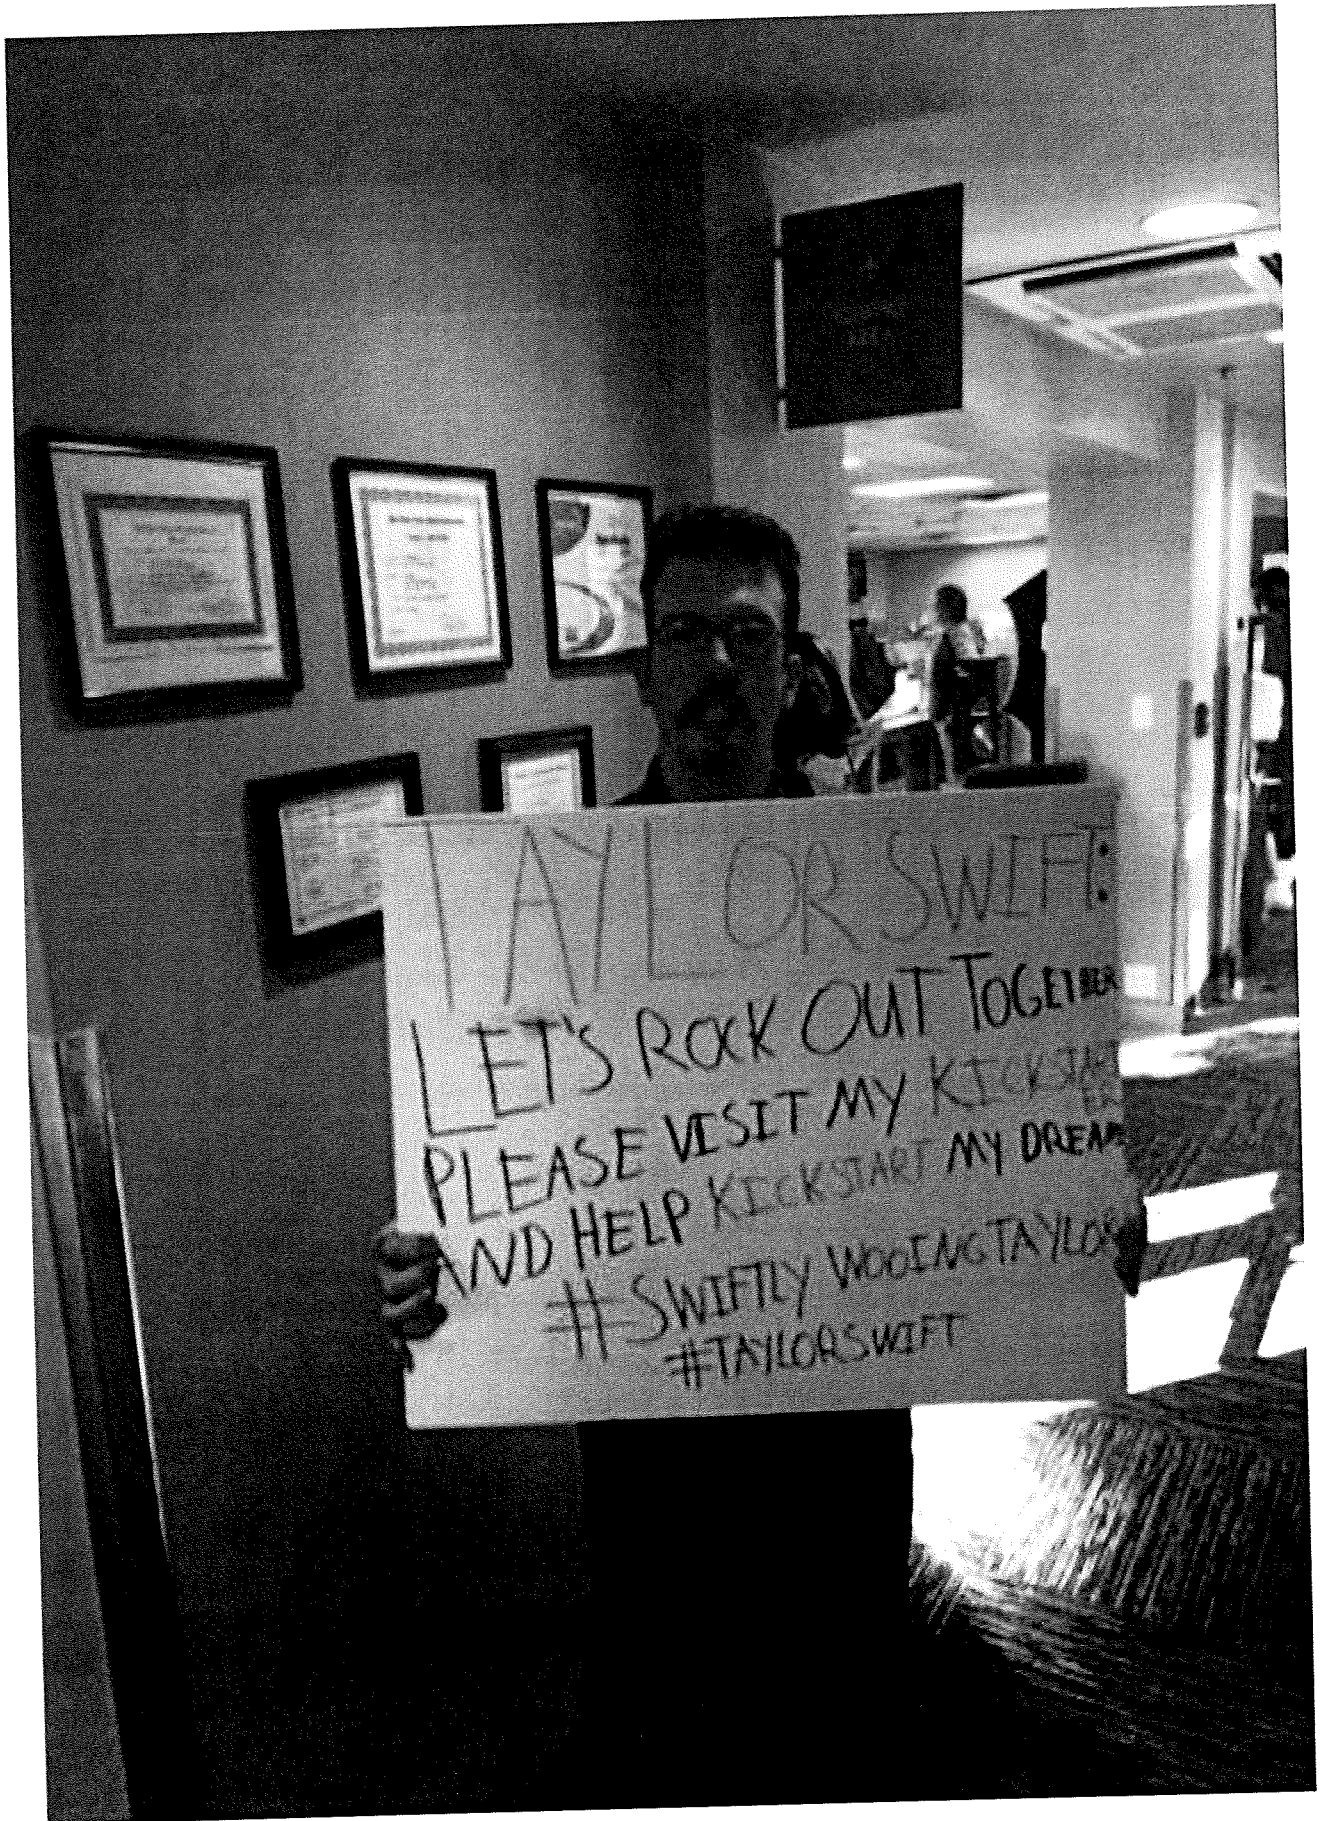 TAYLOR SWIFT:
LET'S ROCK OUT TOGETHER
PLEASE VISIT MY KICKSTART
ER
AND HELP KICKSTART MY DREAMS
#SWIFTLY WOOINGTAYLOR
#TAYLORSWIFT